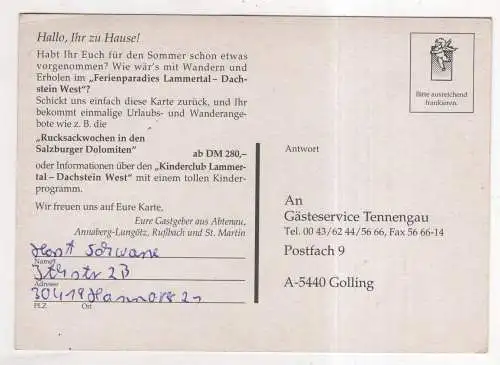 Hallo, Ihr zu Hause!
Habt Ihr Euch für den Sommer schon etwas
vorgenommen? Wie wär's mit Wandern und
Erholen im „Ferienparadies Lammertal – Dach-
stein West"?
Schickt uns einfach diese Karte zurück, und Ihr
bekommt einmalige Urlaubs- und Wanderange-
bote wie z. B. die
„Rucksackwochen in den
Salzburger Dolomiten" ab DM 280,–
oder Informationen über den „Kinderclub Lammer-
tal – Dachstein West" mit einem tollen Kinder-
programm.
Wir freuen uns auf Eure Karte,
Eure Gastgeber aus Abtenau,
Annaberg-Lungötz, Rußbach und St. Martin
Horst
Name
2B
Adresse
30419 Hannover 21
PLZ Ort
Bitte ausreichend
frankieren.
Antwort
An
Gästeservice Tennengau
Tel. 00 43/62 44/56 66, Fax 56 66-14
Postfach 9
A-5440 Golling